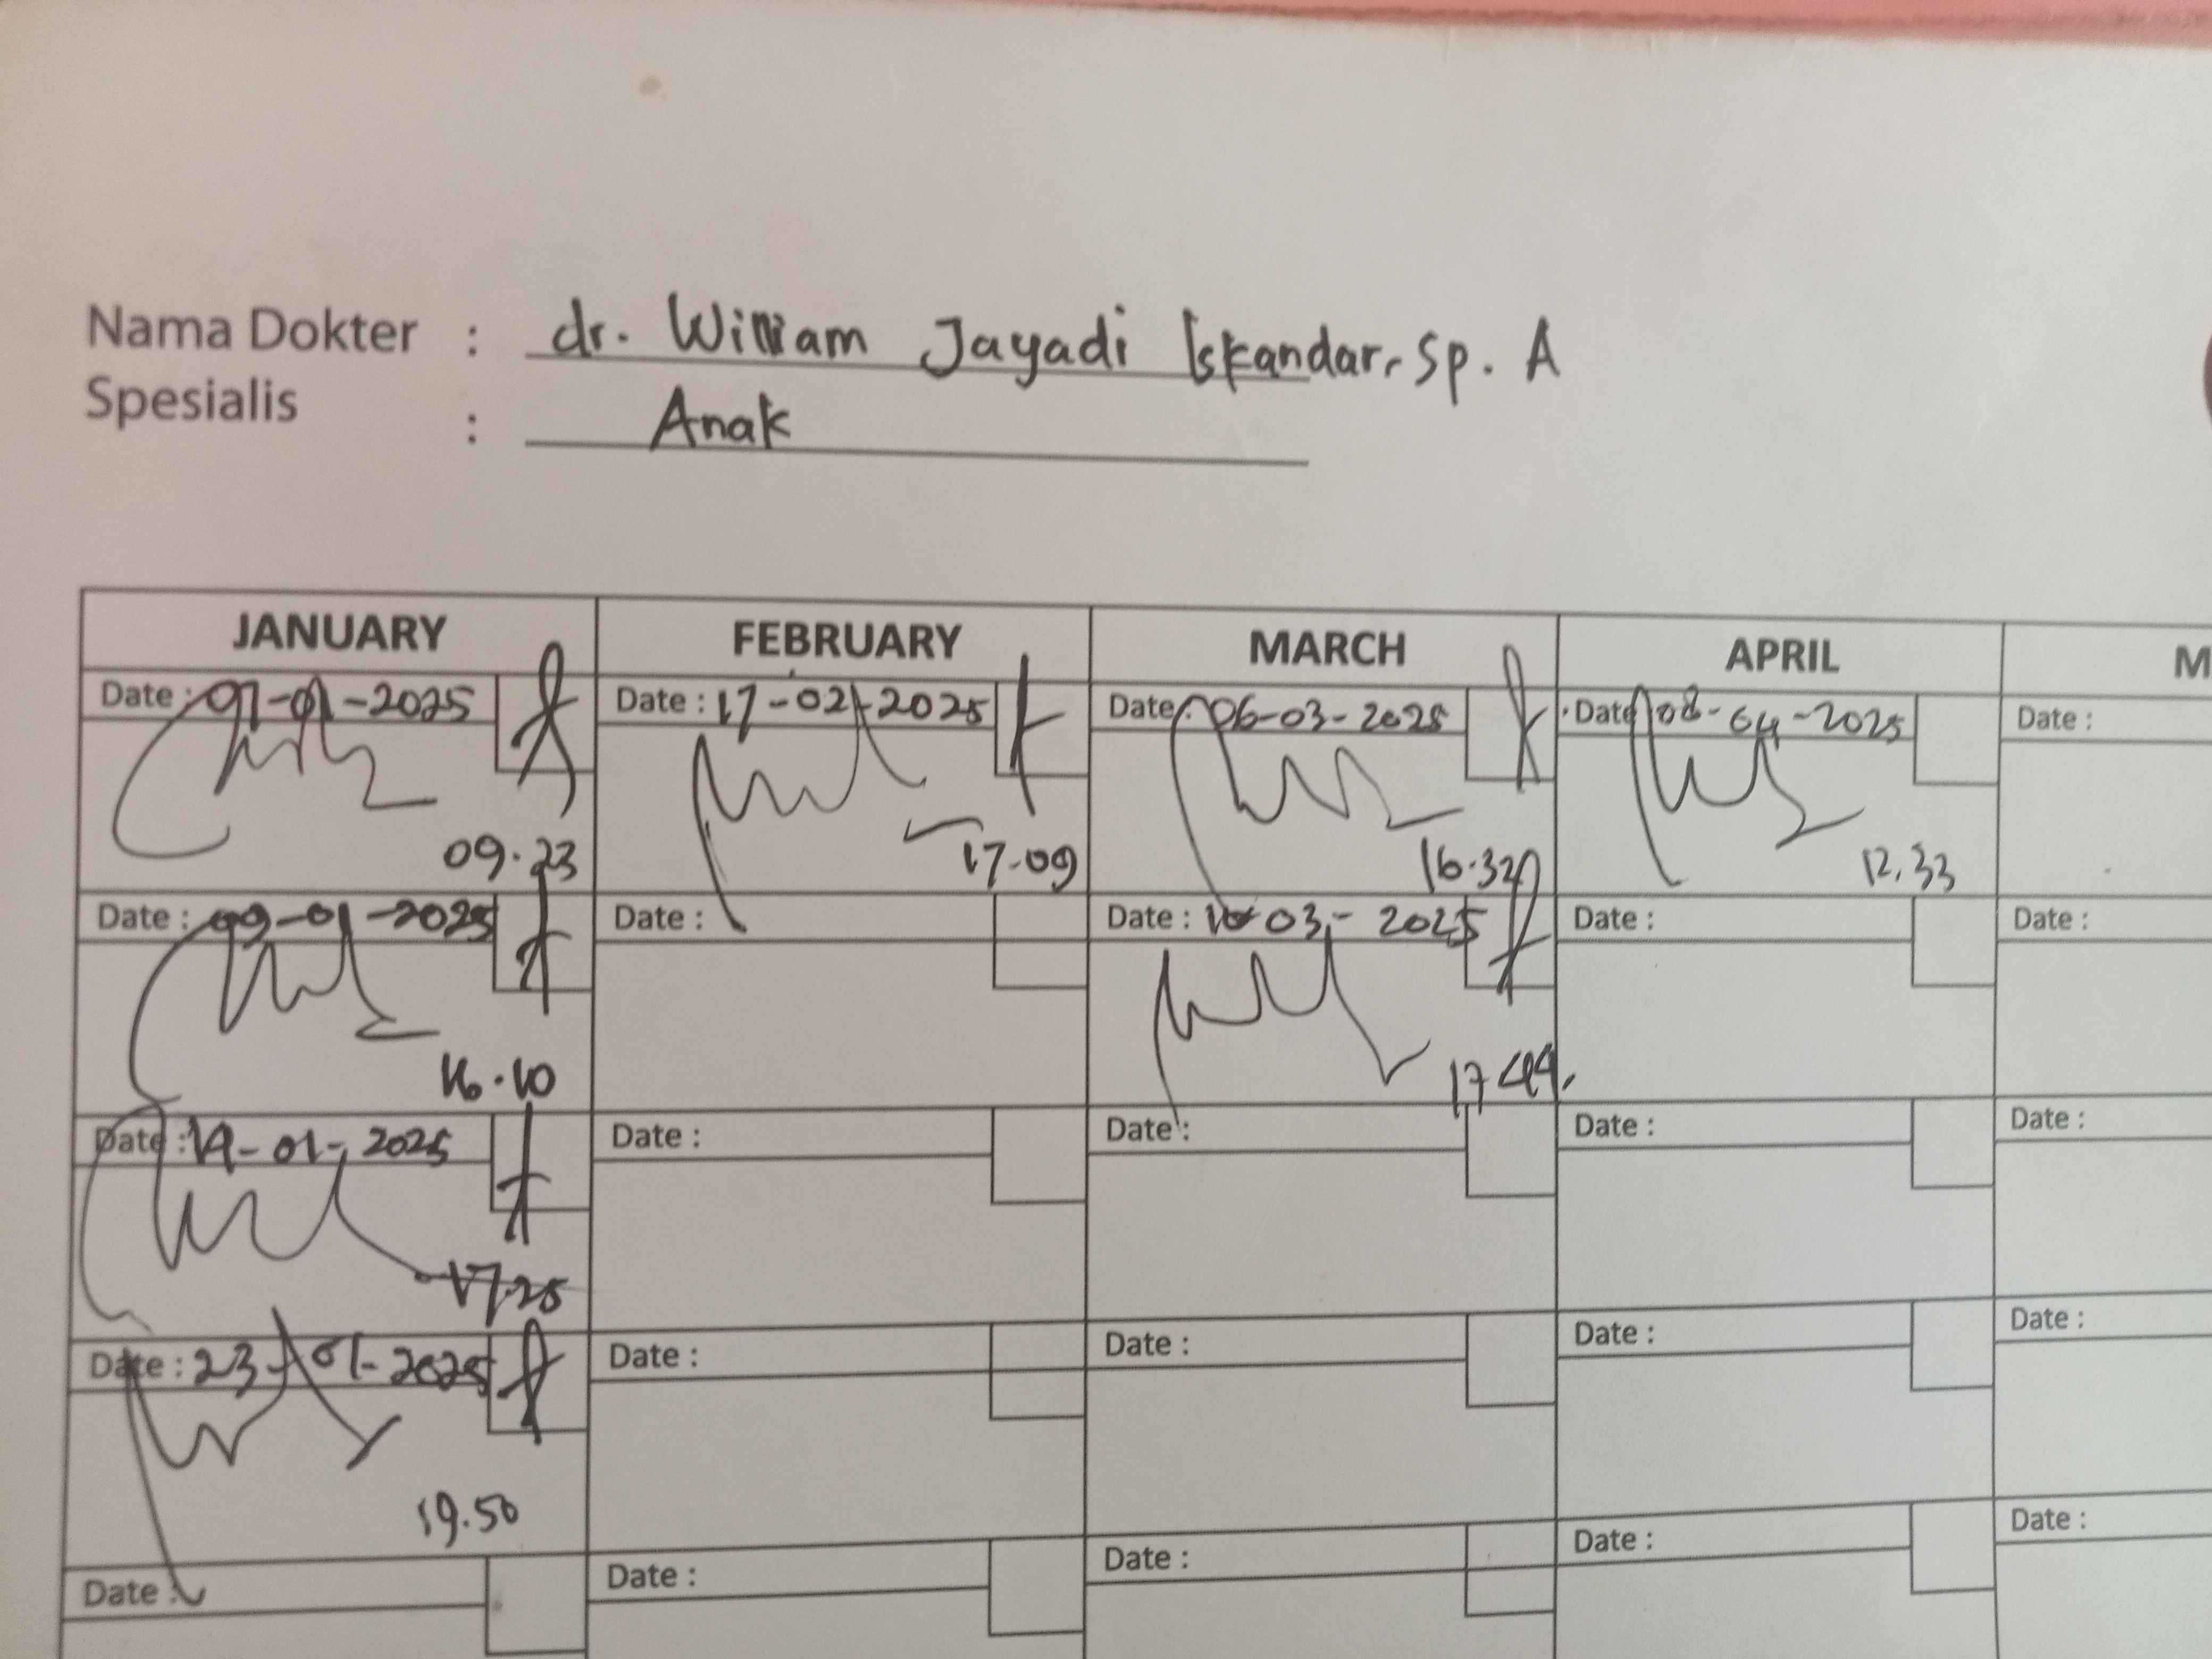 Nama Dokter : dr. William Jayadi Iskandar, Sp. A
Spesialis : Anak
JANUARY FEBRUARY MARCH APRIL M
Date : 07-01-2025 Date : 17-02-2025 Date : 06-03-2025 Date 08-04-2025 Date :
09.23 17-09 16.32 12.33
Date : 09-01-2025 Date : Date : 10-03-2025 Date : Date :
16.10 17 44
Date : 14-01-2025 Date : Date : Date : Date :
17.25
Date : 23-01-2025 Date : Date : Date : Date :
19.50
Date : Date : Date : Date : Date :